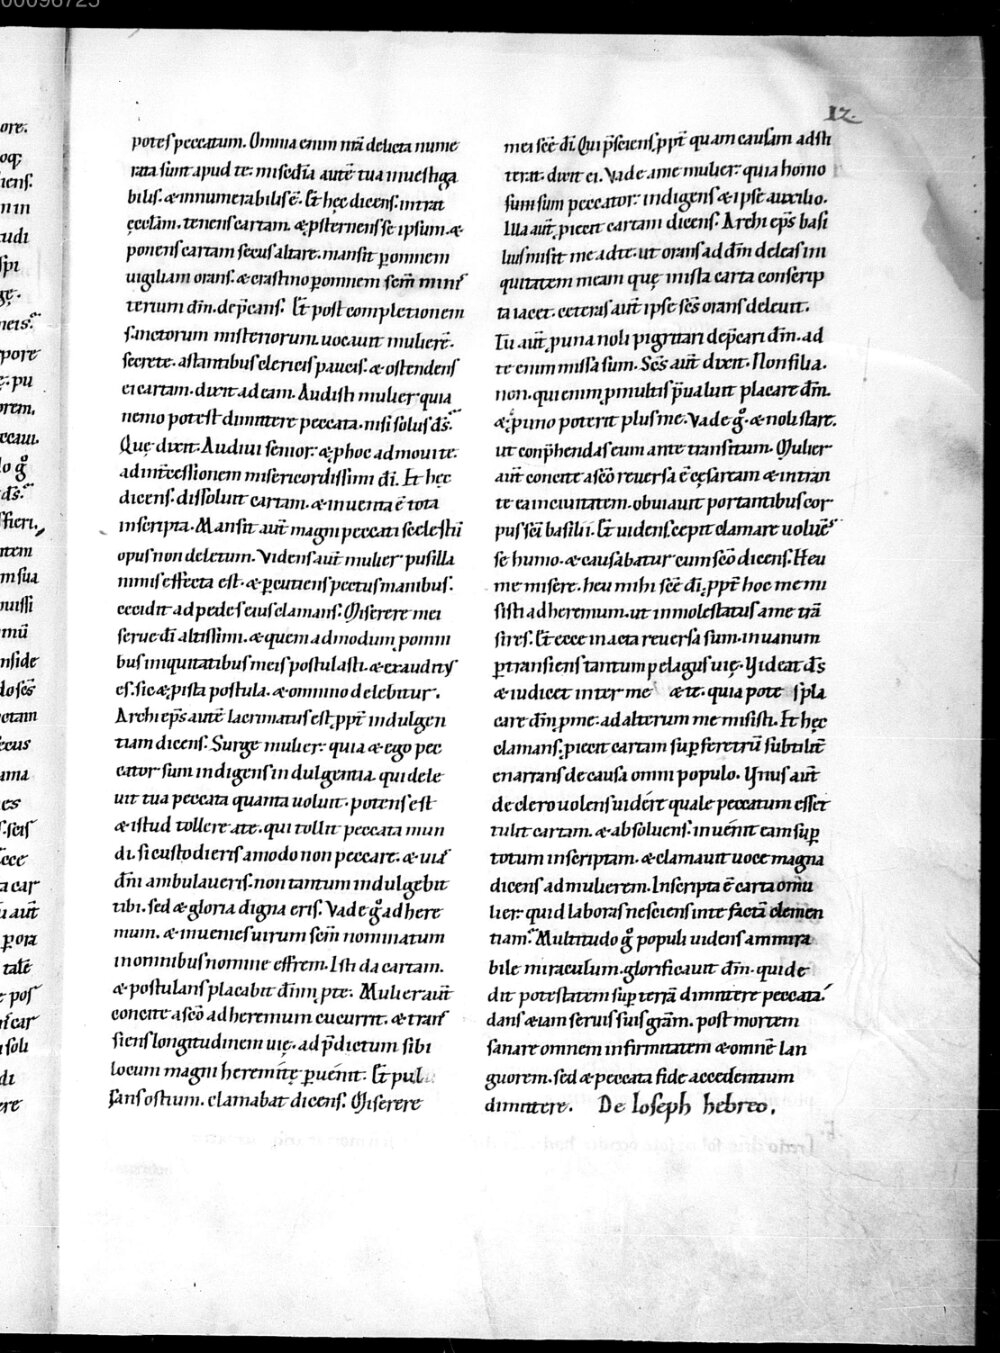 00096725
12.
potes peccatum. Omnia enim nr̄a delicta nume
rata sunt apud te: miseđia autē tua inuestiga
bilis. & innumerabilis ē. Et hęc dicens. intrat
ęcclām. tenens cartam. & psternens se ipsum. &
ponens cartam secus altare. mansit p omnem
uigiliam orans. & crastino p omnem sc̄m minis
terium dn̄m. dep̄cans. Et post completionem
sanctorum misteriorum. uocauit mulierē.
secrete. astantibus clericis paucis. & ostendens
ei cartam. dixit ad eam. Audisti mulier quia
nemo potest dimittere peccata. nisi solus ds̄.
Quę dixit. Audiui senior. & p hoc admoui te.
ad int̄cessionem misericordissimi dī. Et hęc
dicens. dissoluit cartam. & inuenta ē tota
inscripta. Mansit aut̄ magni peccati scelesti
opus non deletum. Videns aut̄ mulier pusilla
nimis effecta est. & pcutiens pectus manibus.
cecidit ad pedes eius clamans. Miserere mei
serue dī altissimi. & quemadmodum p omni
bus iniquitatibus meis postulasti. & exauditus
es. sic & p ista postula. & omnino delebitur.
Archiep̄s autē lacrimatus est. ppt̄ indulgen
tiam dicens. Surge mulier: quia & ego pec
cator sum indigens indulgentia. qui dele
uit tua peccata quanta uoluit. potens est
& istud tollere a te. qui tollit peccata mun
di. si custodieris amodo non peccare. & uias
dn̄i ambulaueris. non tantum indulgebit
tibi. sed & gloria digna eris. Vade g̊ ad here
mum. & inuenies uirum sc̄m nominatum
in omnibus nomine effrem. Isti da cartam.
& postulans placabit dn̄m p te. Mulier aut̄
concite a sc̄o ad heremum cucurrit. & trans
siens longitudinem uię. ad p̄dictum sibi
locum magni heremitę puenit. Et pul
sans ostium. clamabat dicens. Miserere
mei sc̄e dī. Qui p̄sciens. ppt̄ quam causam adsti
terat. dixit ei. Vade a me mulier. quia homo
sum sum peccator. indigens & ipse auxilio.
Illa aut̄ piecit cartam dicens. Archiep̄s basi
lius misit me ad te. ut orans ad dn̄m deleas ini
quitatem meam quę in ista carta conscrip
ta iacet. ceteras aut̄ ipse sc̄s orans deleuit.
Tu aut̄ p una noli pigritari dep̄cari dn̄m. ad
te enim missa sum. Sc̄s aut̄ dixit. Non filia.
non. qui enim p multis p̄ualuit placare dn̄m.
& p uno poterit plus me. Vade g̊. & noli stare.
ut conp̄hendas eum ante transitum. Mulier
aut̄ concite a sc̄o reuersa ē cęsaream. & intran
te ea in ciuitatem. obuiauit portantibus cor
pus sc̄i basilii. Et uidens cepit clamare uoluēs
se humo. & causabatur cum sc̄o dicens. Heu
me misere. heu mihi sc̄e dī. ppt̄ hoc me mi
sisti ad heremum. ut in molestatus a me trā
sires. Et ecce in acta reuersa sum. in uanum
ptransiens tantum pelagus uię. Videat ds̄
& iudicet inter me & te. quia pote s pla
care dn̄m p me. ad alterum me misisti. Et hęc
clamans. piecit cartam sup feretrū subtilit̄
enarrans de causa omni populo. Vnus aut̄
de clero uolens uidere quale peccatum esset
tulit cartam. & absoluens. inuenit eam sup
totum inscriptam. & clamauit uoce magna
dicens ad mulierem. Inscripta ē carta o mu
lier. quid laboras nesciens in te factā clemen
tiam. Multitudo g̊ populi uidens ammira
bile miraculum. glorificauit dn̄m. qui de
dit potestatem sup terrā dimittere peccata.
dans & iam seruis suis grām. post mortem
sanare omnem infirmitatem & omnē lan
guorem. sed & peccata fide accedentium
dimittere. De Ioseph hebreo.